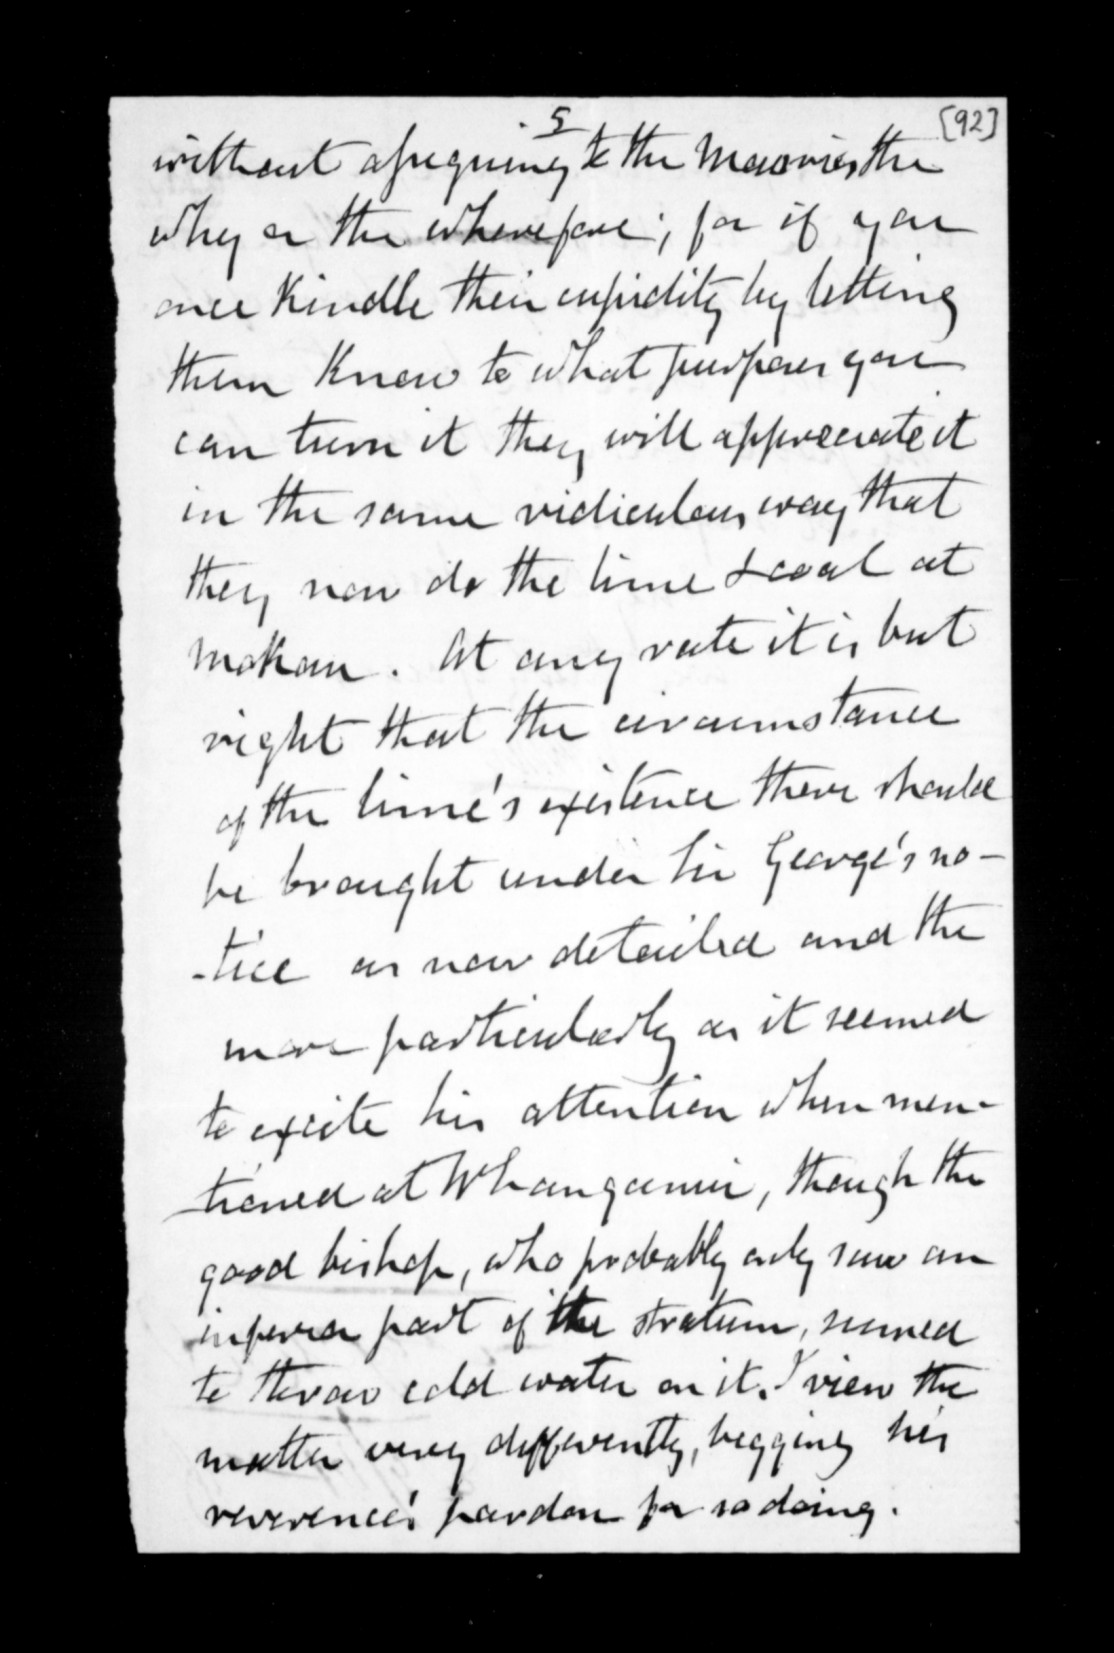 5
[92]
without assigning to the Maories the
why or the wherefore; for if you
once Kindle their cupidity by letting
them Know to what purposes you
can turn it they will appreciate it
in the same ridiculous way that
they now do the lime & coal at
Mokau. At any rate it is but
right that the circumstance
of the lime's existence there should
be brought under Sir George's no-
-tice as now detailed and the
more particularly as it seemed
to excite his attention when men-
tioned at Whanganui, though the
good bishop, who probably only saw an
inferior part of the stratum, seemed
to throw cold water on it. I view the
matter very differently, begging his
reverence's pardon for so doing.